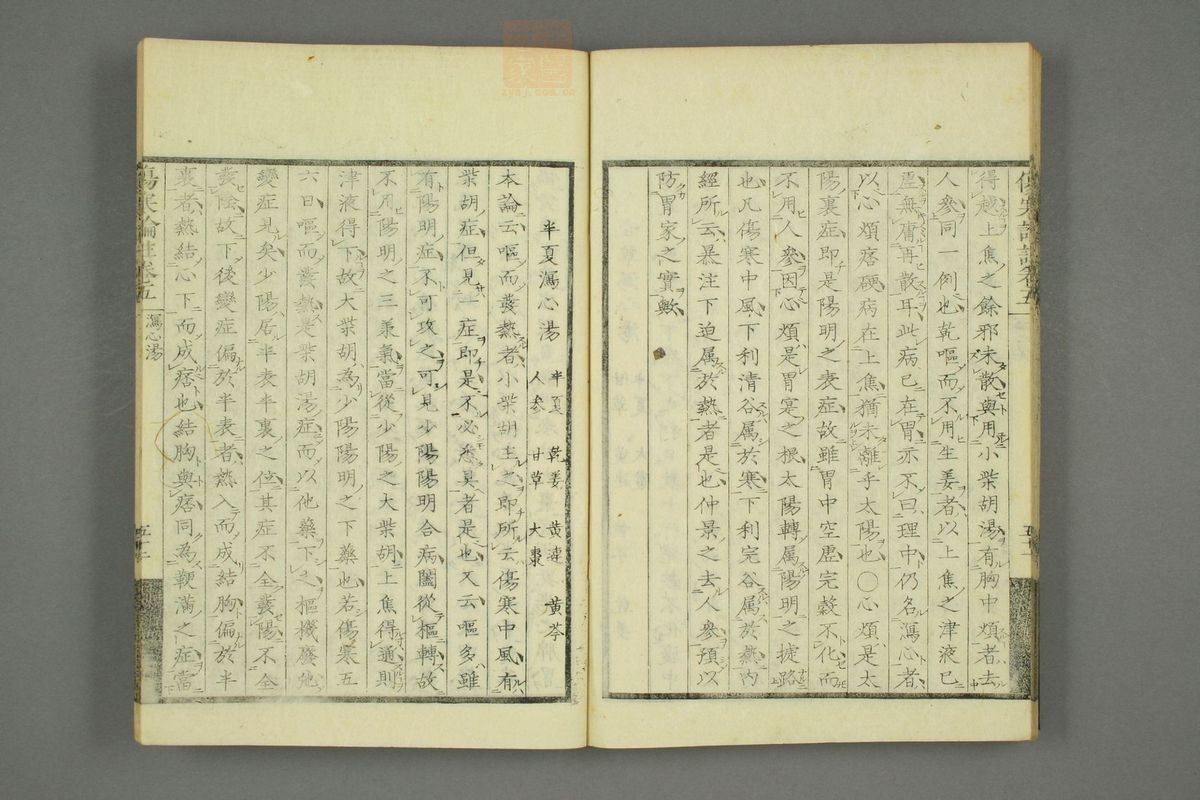 得越上焦之餘邪未散與用小柴胡湯有胸中煩者去
人參同一例也乾嘔而不用生姜者以上焦之津液已
虛無庸再散耳此病已在胃亦不曰理中仍名瀉心者
以心煩痞硬病在上焦猶未離乎太陽也〇心煩是太
陽裏症即是陽明之表症故雖胃中空虛完穀不化而
不用人參因心煩是胃寔之根太陽轉属陽明之捷路
也凡傷寒中風下利清谷属於寒下利完谷属於熱內
經所云暴注下迫属於熱者是也仲景之去人參預以
防胃家之實歟
半夏瀉心湯
半夏 乾姜 黃連 黃芩
人參 甘草 大棗
本論云嘔而發熱者小柴胡主之即所云傷寒中風有
柴胡症但見一症即是不必悉具者是也又云嘔多雖
有陽明症不可攻之可見少陽陽明合病闔從樞轉故
不用陽明之三承氣當從少陽之大柴胡上焦得通則
津液得下故大柴胡為少陽陽明之下藥也若傷寒五
六日嘔而發熱是柴胡湯症而以他藥下之樞機廢他
變症見矣少陽居半表半裏之位其症不全發陽不全
發陰故下後變症偏於半表者熱入而成結胸偏於半
裏者熱結心下而成痞也結胸與痞同為鞕滿之症當
傷寒論註卷五
瀉心湯
五十二